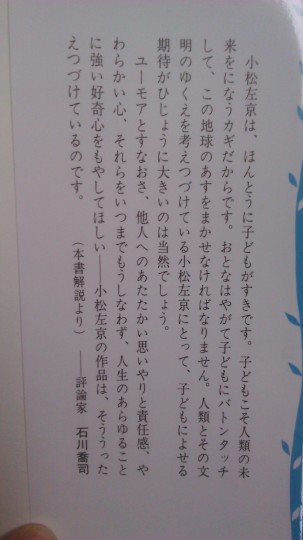 小松左京は、ほんとうに子どもがすきです。子どもこそ人類の未
来をになうカギだからです。おとなはやがて子どもにバトンタッチ
して、この地球のあすをまかせなければなりません。人類とその文
明のゆくえを考えつづけている小松左京にとって、子どもによせる
期待がひじょうに大きいのは当然でしょう。
ユーモアとすなおさ、他人へのあたたかい思いやりと責任感、や
わらかい心、それらをいつまでもうしなわず、人生のあらゆること
に強い好奇心をもやしてほしい――小松左京の作品は、そううった
えつづけているのです。
（本書解説より）――評論家 石川喬司